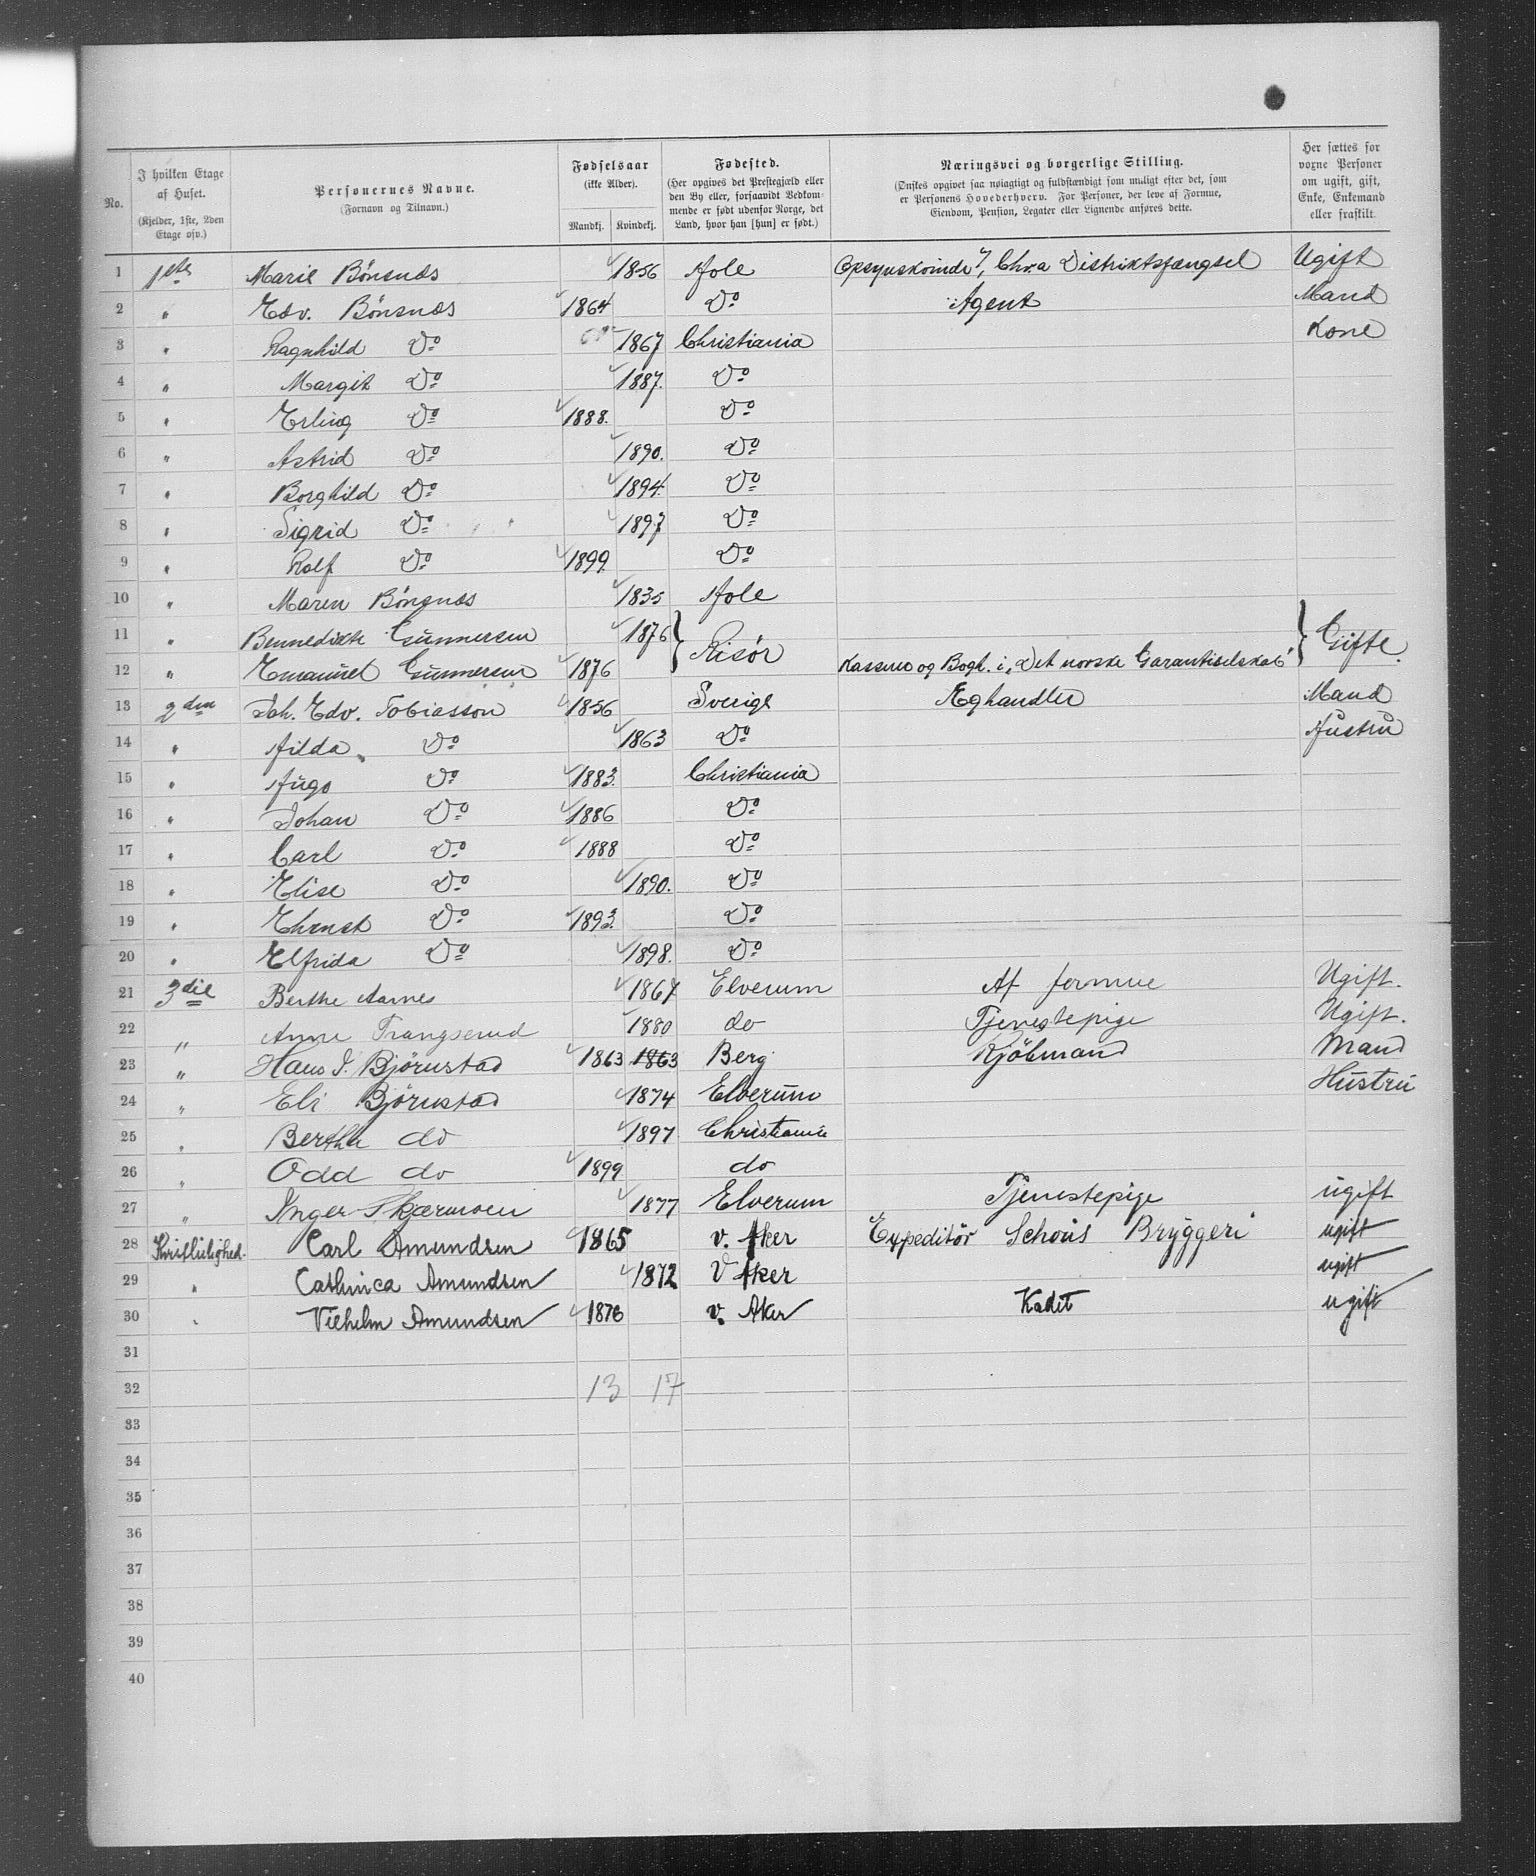 No. I hvilken Etage af Huset. (Kjelder, 1ste, 2den Etage osv.) Personernes Navne. (Fornavn og Tilnavn.) Fødselsaar (ikke Alder). Mandkj. Kvindekj. Fødested. (Her opgives det Prestegjæld eller den By eller, forsaavidt Vedkommende er født udenfor Norge, det Land, hvor han [hun] er født.) Næringsvei og borgerlige Stilling. (Ønskes opgivet saa nøiagtigt og fuldstændigt som muligt efter det, som er Personens Hovederhverv. For Personer, der leve af Formue, Eiendom, Pension, Legater eller Lignende anføres dette. Her sættes for voxne Personer om ugift, gift, Enke, Enkemand eller fraskilt.
1 1ste Marie Bönsnæs 1856 Hole Opsynskvinde v, Chr.a Distriktsfængsel Ugift
2 " Edv. Bönsnæs 1864 Do Agent Mand
3 " Ragnhild Do 1867 Christiania Kone
4 " Margit Do 1887. Do
5 " Erling Do 1888. Do
6 " Astrid Do 1890. Do
7 " Borghild Do 1894. Do
8 " Sigrid Do 1897 Do
9 " Rolf Do 1899. Do
10 " Maren Bönsnæs 1835 Hole
11 " Bennedikte Gunnersen 1876 } Risör } Gifte.
12 " Emanuel Gunnersen 1876 Kasserer og Bogh. i "Det norske Garantiselskab"
13 2den Joh. Edv. Tobiasson 1856 Sverige Æghandler Mand
14 " Hilda Do 1863 Do Hustru
15 " Hugo Do 1883. Christiania
16 " Johan Do 1886 Do
17 " Carl Do 1888 Do
18 " Elise Do 1890. Do
19 " Ehrnst Do 1893. Do
20 " Elfrida Do 1898. Do
21 3die Berthe Aarnes 1867 Elverum Af formue Ugift.
22 " Anne Trangsrud 1880 do Tjenestepige Ugift.
23 " Hans J. Bjørnstad 1863 1863 Berg Kjöbmand Mand
24 " Eli Bjørnstad 1874 Elverum Hustru
25 " Bertha do 1897 Christiania
26 " Odd do 1899 do
27 " Inger Skjærmoen 1877 Elverum Tjenestepige ugift
28 Carl Amundsen 1865 v. Aker Expeditör Schous Bryggeri ugift
29 " Cathinca Amundsen 1872 V Aker ugift
30 " Vilhelm Amundsen 1876 v. Aker Kadet ugift
31
32 13 17
33
34
35
36
37
38
39
40